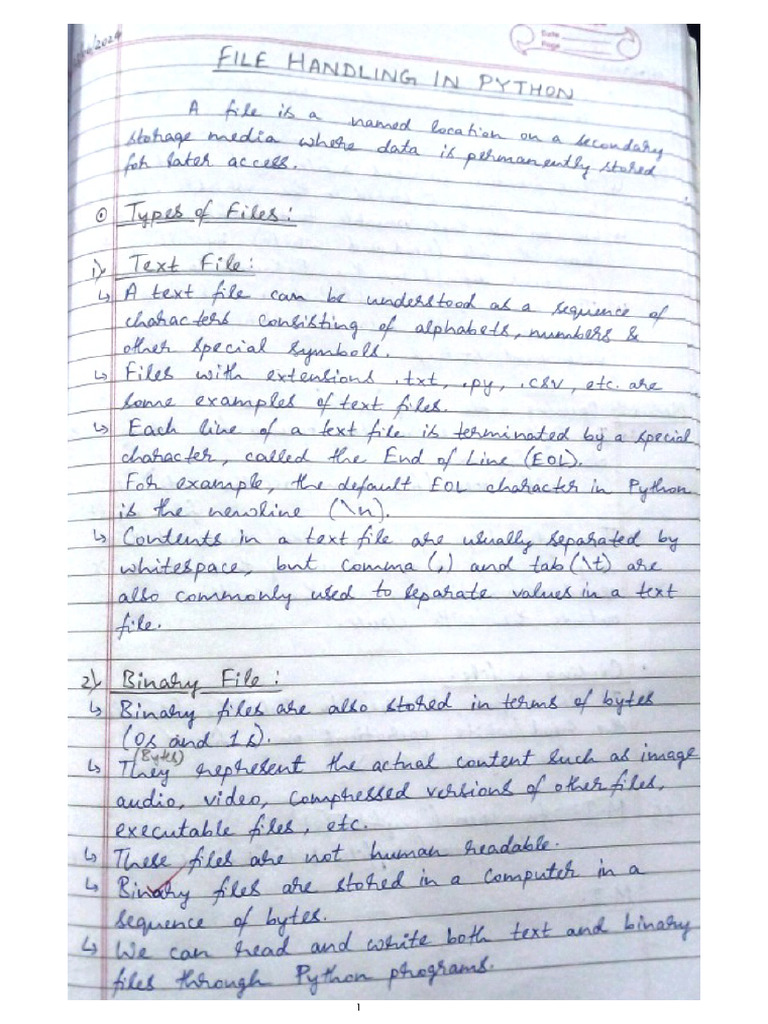 /2024
Date
Page
FILE HANDLING IN PYTHON
A file is a named location on a secondary
storage media where data is permanently stored
for later access.
Types of Files:
1) Text File:
↳ A text file can be understood as a sequence of
characters consisting of alphabets, numbers &
other special symbols.
↳ Files with extensions .txt, .py, .csv, etc. are
some examples of text files.
↳ Each line of a text file is terminated by a special
character, called the End of Line (EOL).
For example, the default EOL character in Python
is the newline (\n).
↳ Contents in a text file are usually separated by
whitespace, but comma (,) and tab (\t) are
also commonly used to separate values in a text
file.
2) Binary File:
↳ Binary files are also stored in terms of bytes
(0s and 1s).
(Bytes)
↳ They represent the actual content such as image
audio, video, compressed versions of other files,
executable files, etc.
↳ These files are not human readable.
↳ Binary files are stored in a computer in a
sequence of bytes.
↳ We can read and write both text and binary
files through Python programs.
1